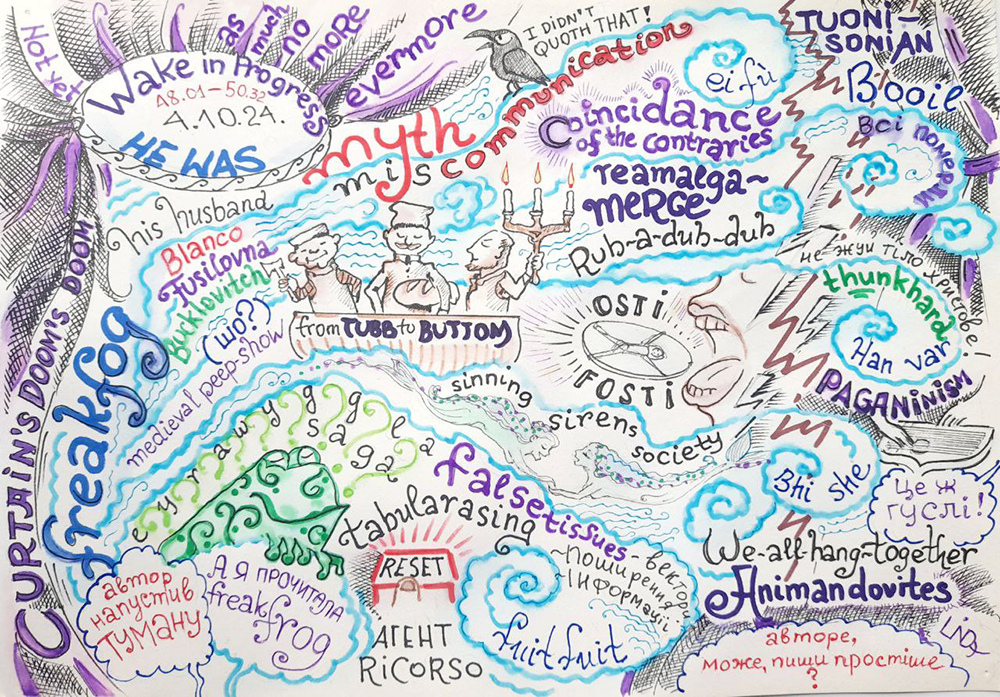 Not yet
as
much
no
more
evermore
I DIDN'T
QUOTH THAT!
TUONI-
SONIAN
Wake in Progress
48.01–50.32
4.10.24.
HE WAS
myth
miscommunication
eifù
Booil
Coincidance
of the contraries
Всі померли
his husband
reamalga~
merge
Rub-a-dub-dub
Blanco
Fusilovna
Bucklovitch
(wo?)
medieval peep-show
from TUBB to BUTTOM
OSTI
FOSTI
не жуй тіло христове!
thunkhard
Han var
PAGANINISM
CURTAIN'S DOOM'S DOOM
freakfog
eyrawyggla saga
sinning
sirens
society
Bhi she
Це ж
гуслі!
falsetissues
– вектор
поширення
інформації
tabularasing
RESET
АГЕНТ
RICORSO
fuitfuit
We-all-hang-together
Animandovites
автор
напустив
туману
А Я ПРОЧИТАЛА
freak
frog
авторе,
може, пиши простіше
?